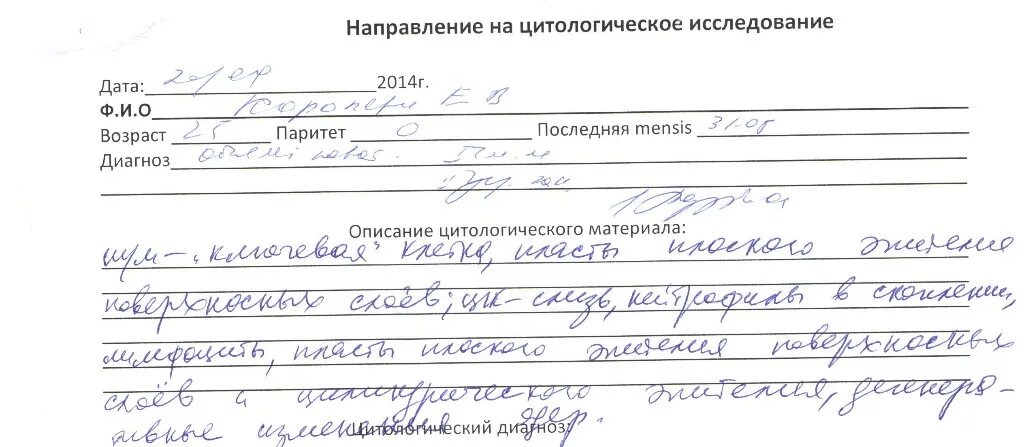 Направление на цитологическое исследование
Дата: 2014г.
Ф.И.О Е В
Возраст 25 Паритет 0 Последняя mensis 31.08
Диагноз
Описание цитологического материала:
шум – „ключевая" клетка, пласты плоского эпителия
поверхносных слоёв; цк-слизь, нейтрофилы в скоплении,
лимфоциты, пласты плоского эпителия поверхносных
слоёв и цилиндрического эпителия, дегенера-
тивные изменения ядер.
Цитологический диагноз: